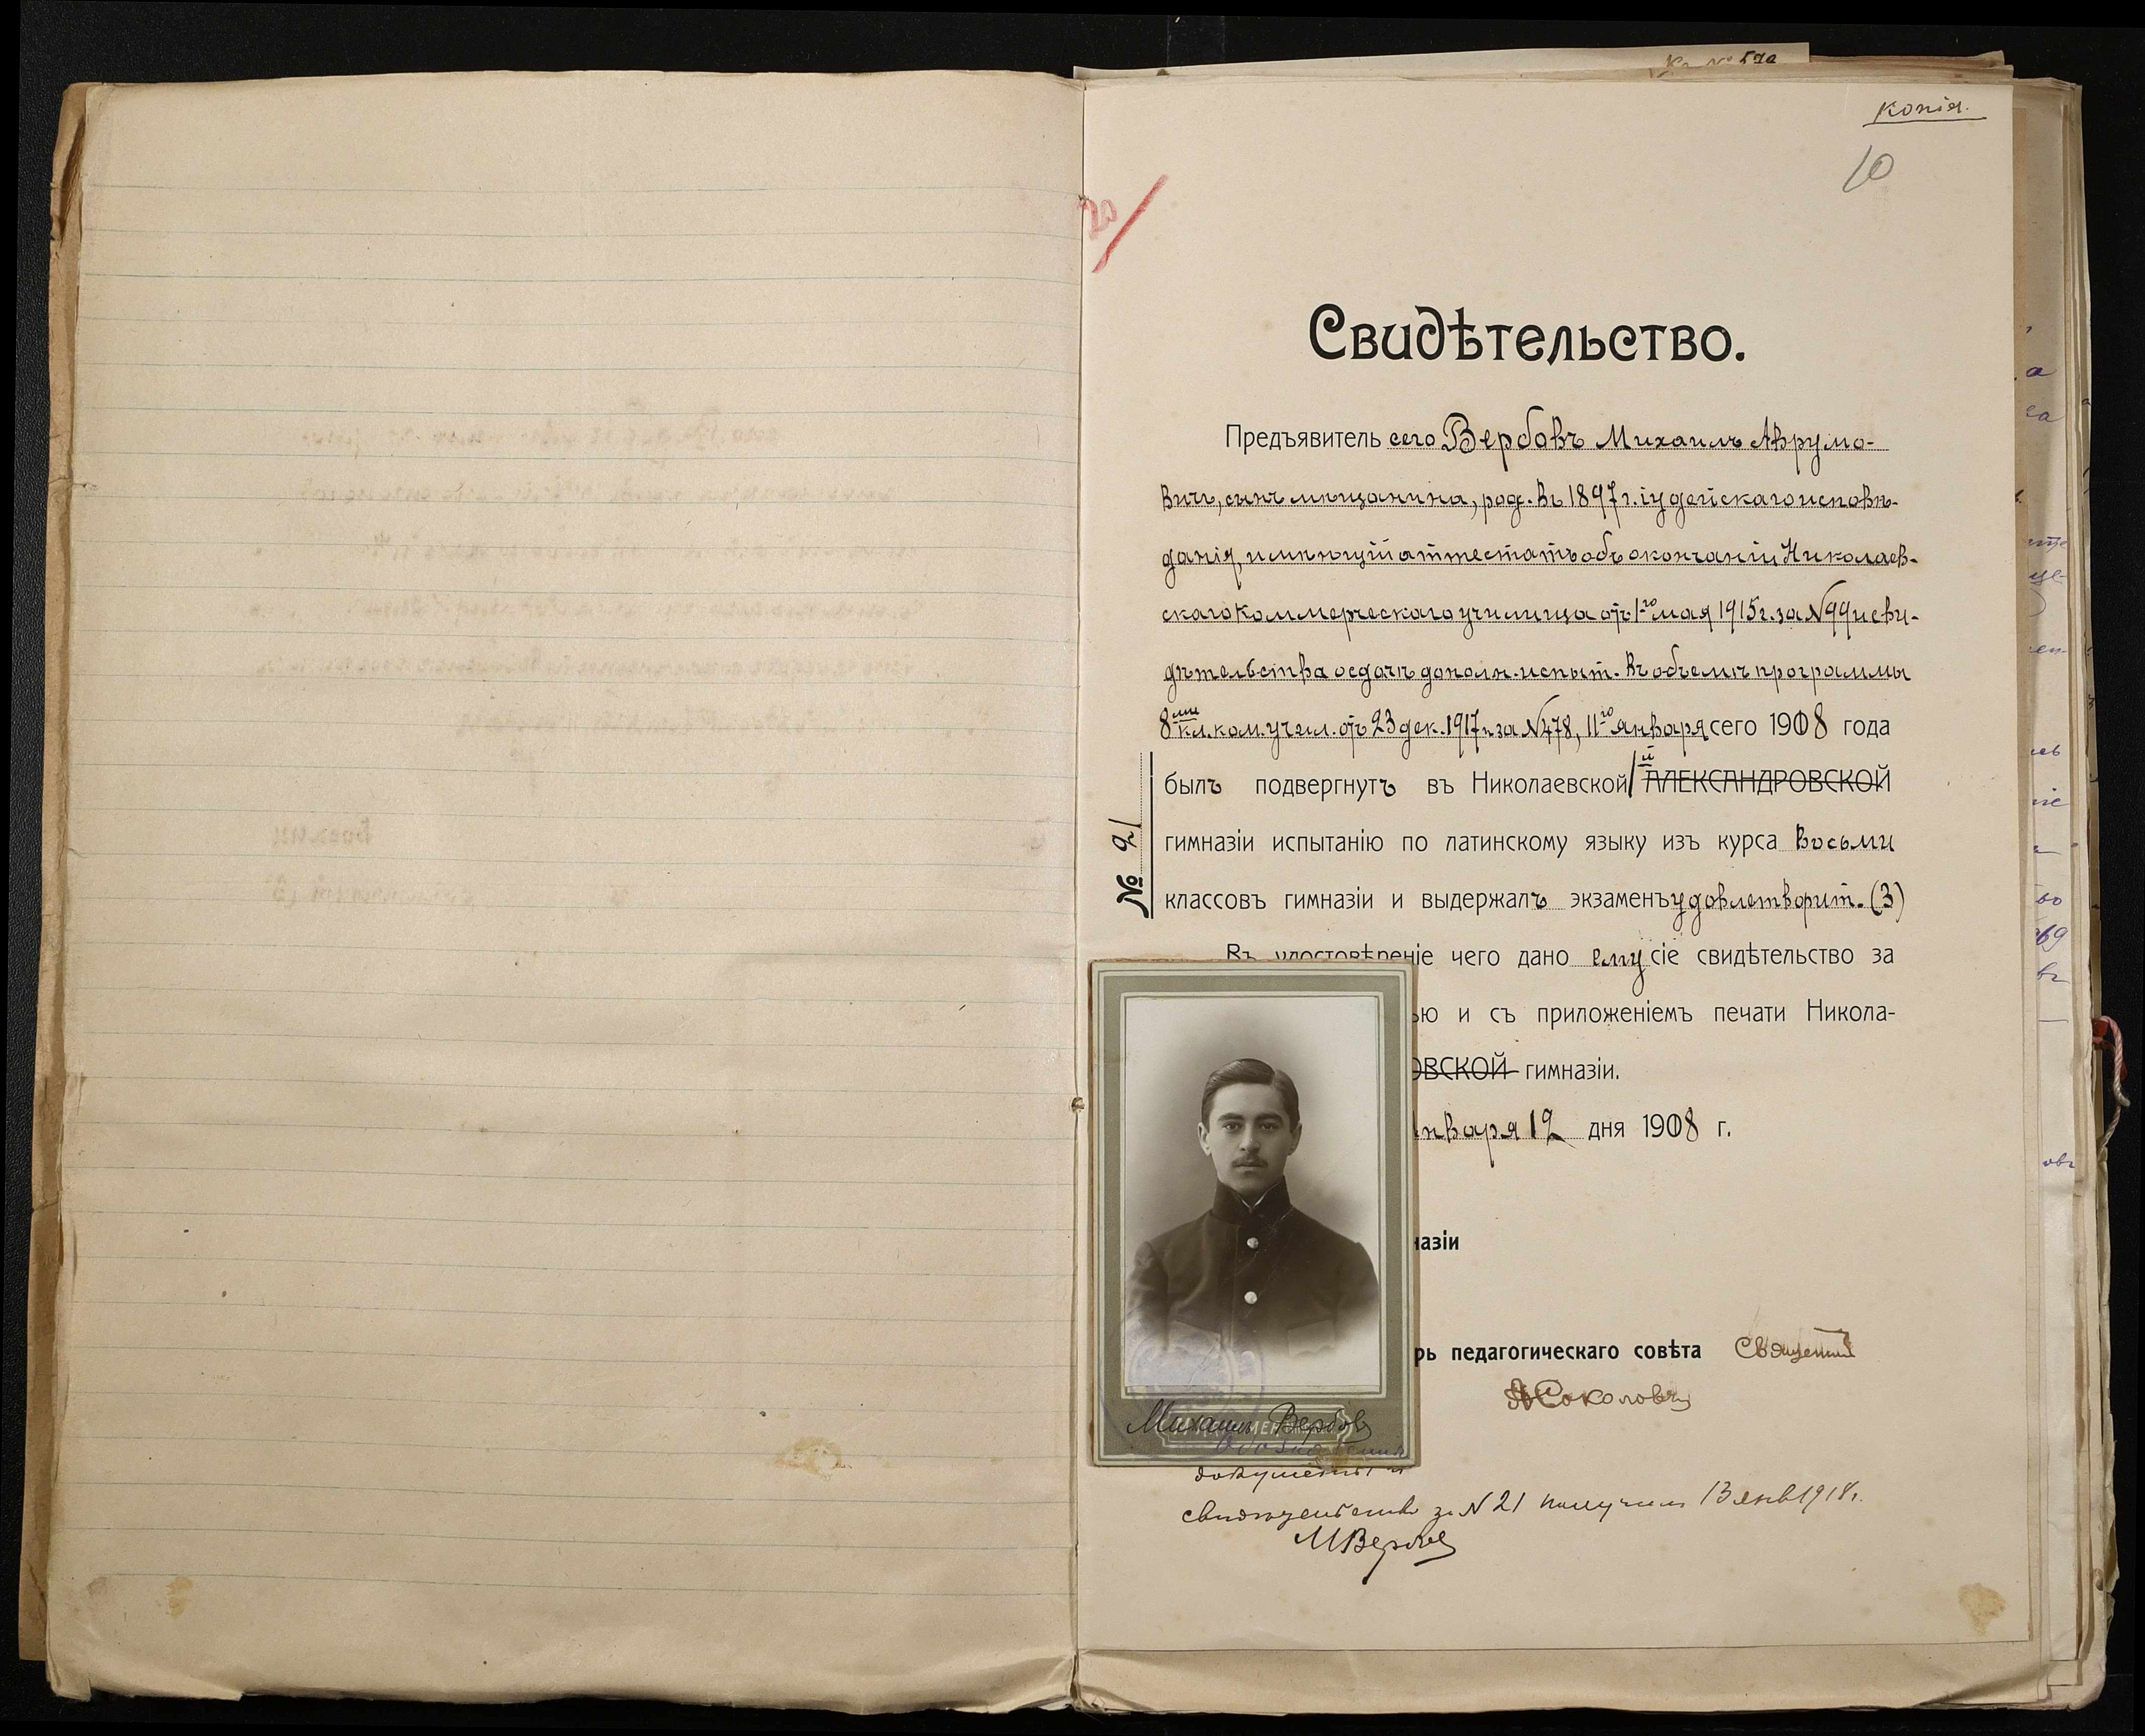 копія.
10
20/
Свидѣтельство.
Предъявитель сего Вербовъ Михаилъ Аврумо-
вичъ, сынъ мѣщанина, род. въ 1897 г. іудейскаго исповѣ-
данія, имѣющій аттестатъ объ окончаніи Николаев-
скаго Коммерческаго училища отъ 1го мая 1915 г. за №99 и сви-
дѣтельства о сдачѣ дополн. испыт. въ объемѣ программы
8ми кл. ком. учил. отъ 23 дек. 1917 г. за №478, 11го января сего 1908 года
былъ подвергнутъ въ Николаевской/й АЛЕКСАНДРОВСКОЙ
гимназіи испытанію по латинскому языку изъ курса восьми
классовъ гимназіи и выдержалъ экзаменъ удовлетворит. (3)
№ 21
Въ удостовѣреніе чего дано ему сіе свидѣтельство за
ью и съ приложеніемъ печати Никола-
ОВСКОЙ гимназіи.
нваря 12 дня 1908 г.
назіи
рь педагогическаго совѣта Священ
А Соколовъ
Михаилъ Вербовъ
документы и
свидѣтельство за №21 получилъ 13 янв 1918 г.
МВербов